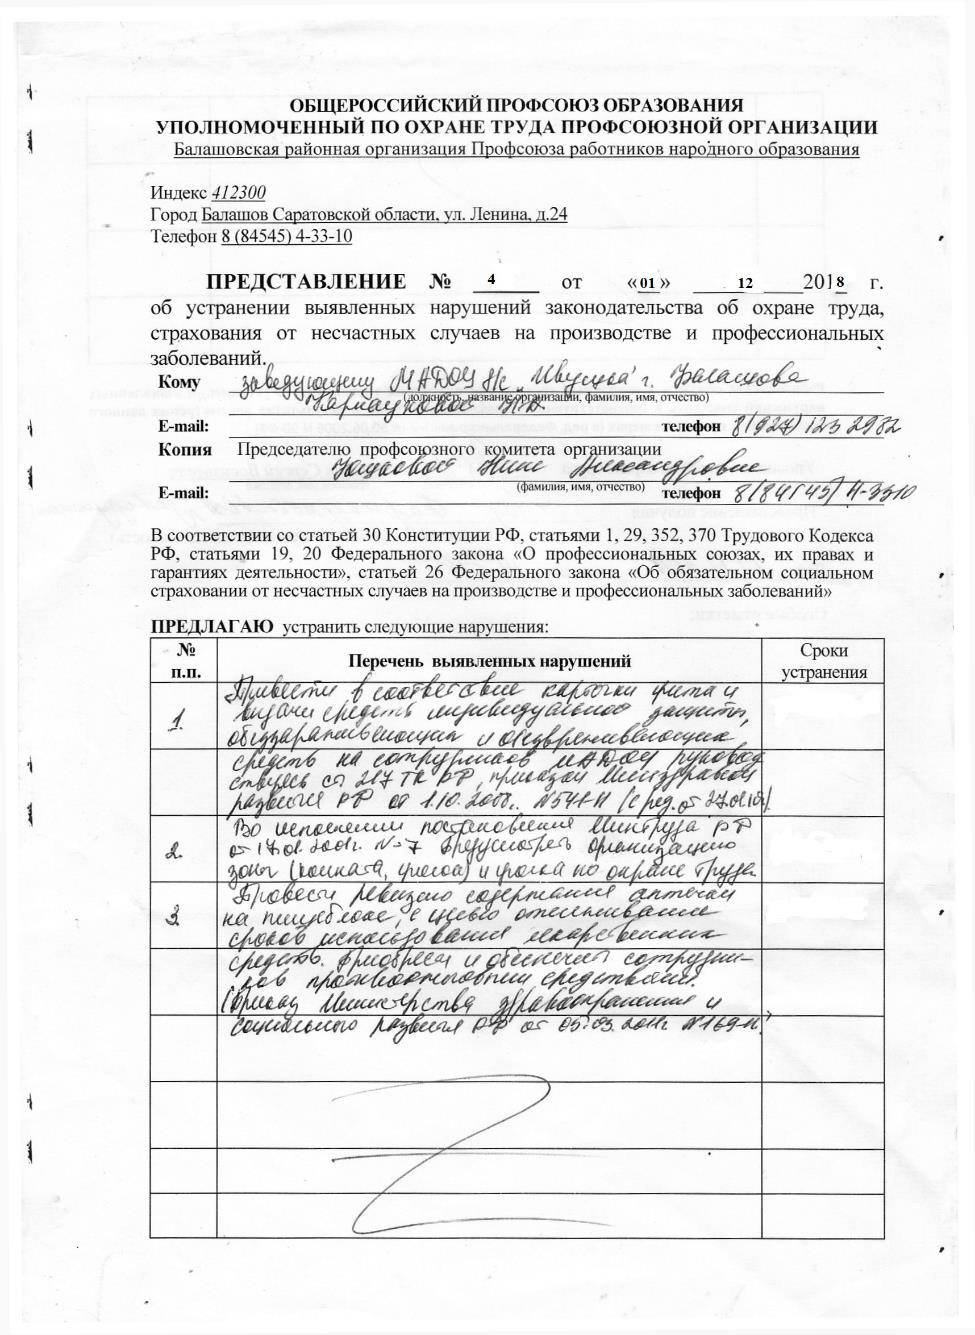 ОБЩЕРОССИЙСКИЙ ПРОФСОЮЗ ОБРАЗОВАНИЯ
УПОЛНОМОЧЕННЫЙ ПО ОХРАНЕ ТРУДА ПРОФСОЮЗНОЙ ОРГАНИЗАЦИИ
Балашовская районная организация Профсоюза работников народного образования
Индекс 412300
Город Балашов Саратовской области, ул. Ленина, д.24
Телефон 8 (84545) 4-33-10
ПРЕДСТАВЛЕНИЕ № 4 от «01» 12 2018 г.
об устранении выявленных нарушений законодательства об охране труда,
страхования от несчастных случаев на производстве и профессиональных
заболеваний.
Кому заведующему МАДОУ д/с "Ивушка" г. Балашова
(должность, название организации, фамилия, имя, отчество)
E-mail: телефон 8(927) 123 2982
Копия Председателю профсоюзного комитета организации
Нине Александровне
(фамилия, имя, отчество)
E-mail: телефон 8/84545/ 4-3310
В соответствии со статьей 30 Конституции РФ, статьями 1, 29, 352, 370 Трудового Кодекса
РФ, статьями 19, 20 Федерального закона «О профессиональных союзах, их правах и
гарантиях деятельности», статьей 26 Федерального закона «Об обязательном социальном
страховании от несчастных случаев на производстве и профессиональных заболеваний»
ПРЕДЛАГАЮ устранить следующие нарушения:
№ п.п. Перечень выявленных нарушений Сроки устранения
1. Привести в соответствие карточки учета и
выдачи средств индивидуальной защиты,
обеззараживающих и обезвреживающих
средств на сотрудников МАДОУ руковод
ствуясь ст 217 ТК РФ, приказом Минздравсоц
развития РФ от 1.10.2008г. №541-Н
2. Во исполнении постановления Минтруда РФ
от 17.01.2001г. №7 предусмотреть организацию
зоны (комната, уголка) и уголка по охране труда.
3. Провести ревизию содержания аптечки
на пищеблоке, с целью отслеживания
сроков использования лекарственных
средств. Приобрести и обеспечить сотрудни-
ков противоожоговыми средствами.
(Приказ Министерства здравоохранения и
социального развития РФ от 05.03.2011г. №169-Н.)